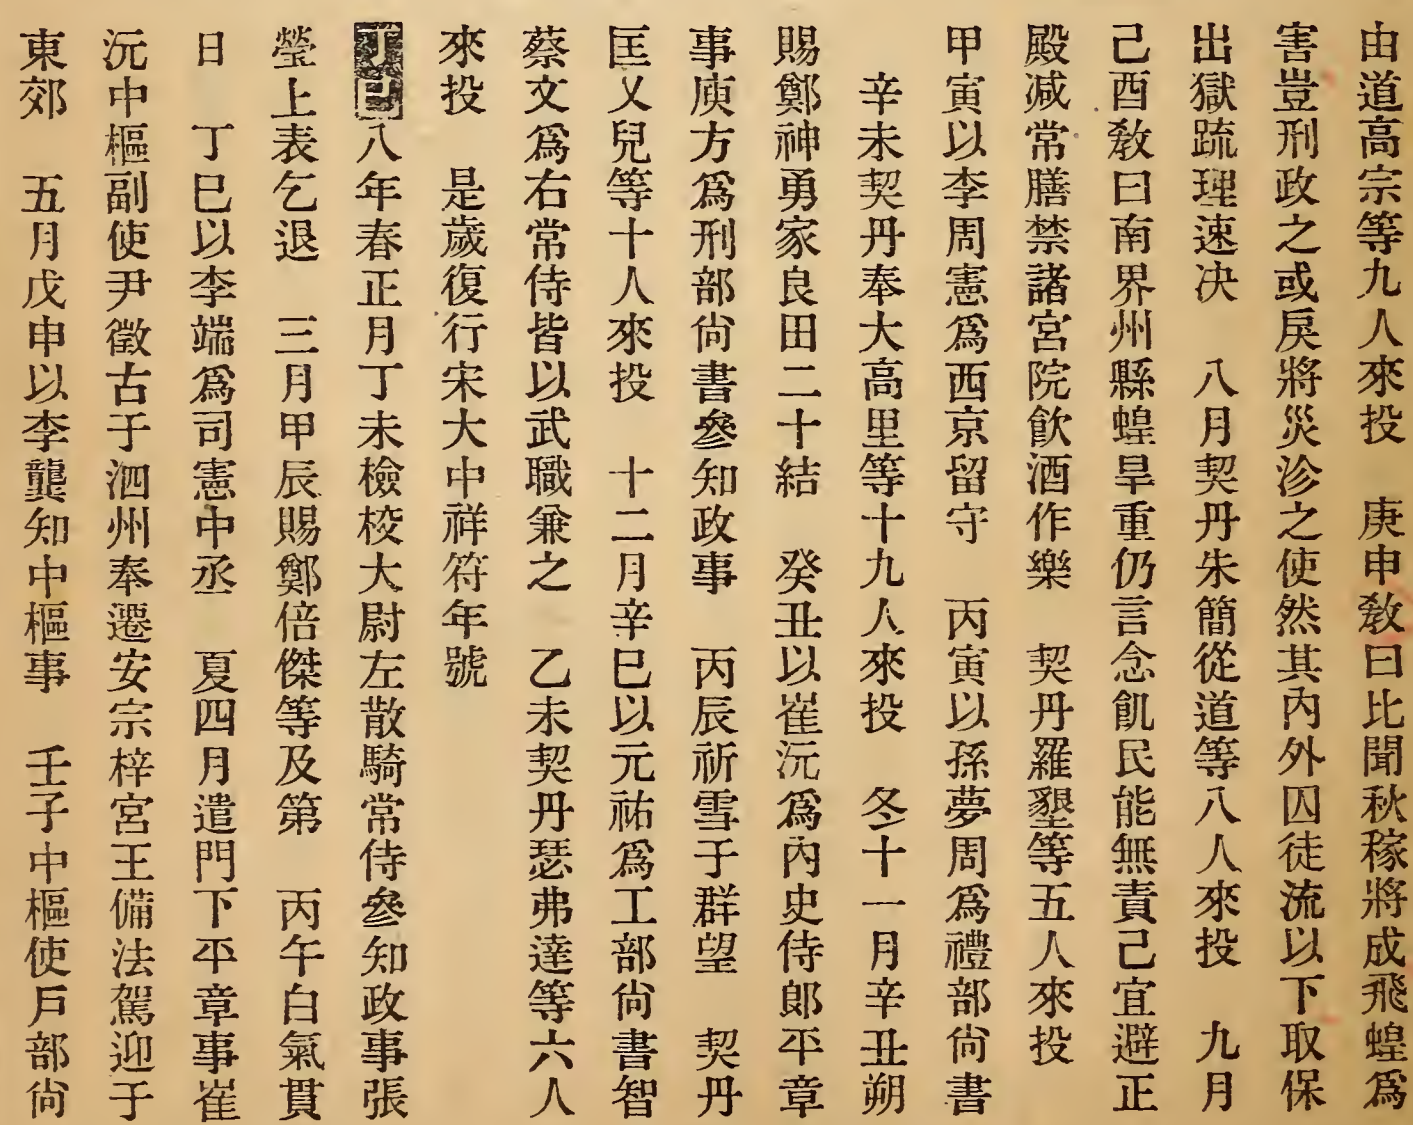 由道高宗等九人來投　庚申敎曰比聞秋稼將成飛蝗爲
害豈刑政之或戾將災沴之使然其內外囚徒流以下取保
出獄疏理速决　八月契丹朱簡從道等八人來投　九月
己酉敎曰南界州縣蝗旱重仍言念飢民能無責己宜避正
殿减常膳禁諸宮院飮酒作樂　契丹羅墾等五人來投
甲寅以李周憲爲西京留守　丙寅以孫夢周爲禮部尙書
辛未契丹奉大高里等十九人來投　冬十一月辛丑朔
賜鄭神勇家良田二十結　癸丑以崔沅爲內史侍郞平章
事庾方爲刑部尙書參知政事　丙辰祈雪于群望　契丹
匡乂兒等十人來投　十二月辛巳以元祐爲工部尙書智
蔡文爲右常侍皆以武職兼之　乙未契丹瑟弗達等六人
來投　是歲復行宋大中祥符年號
丁巳八年春正月丁未檢校大尉左散騎常侍參知政事張
瑩上表乞退　三月甲辰賜鄭倍傑等及第　丙午白氣貫
日　丁巳以李端爲司憲中丞　夏四月遣門下平章事崔
沅中樞副使尹徵古于泗州奉遷安宗梓宮王備法駕迎于
東郊　五月戊申以李龔知中樞事　壬子中樞使戶部尙